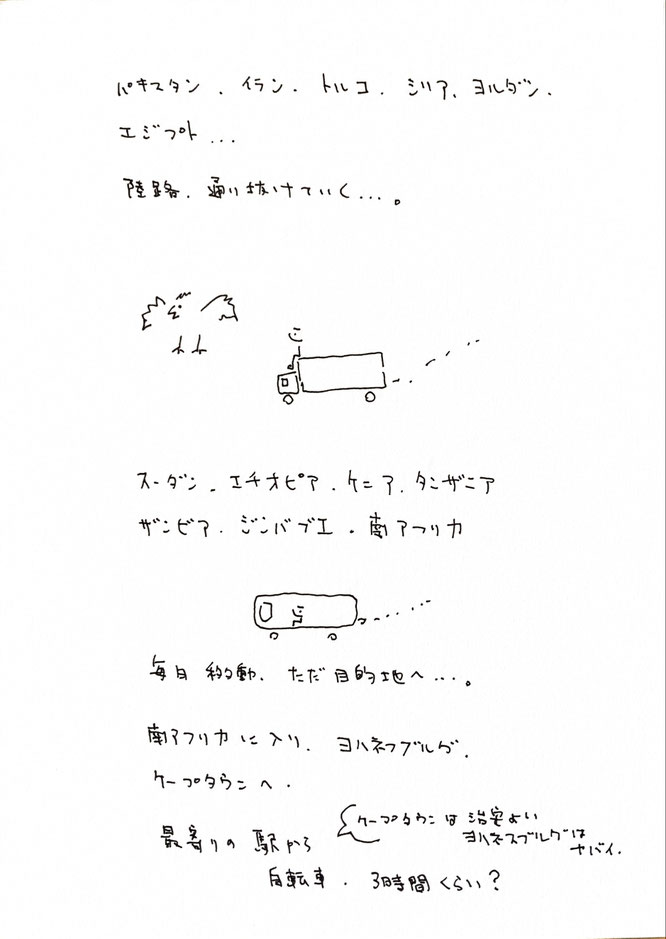 パキスタン、イラン、トルコ、シリア、ヨルダン、
エジプト...
陸路、通り抜けていく...。
スーダン、エチオピア、ケニア、タンザニア
ザンビア、ジンバブエ、南アフリカ
毎日移動、ただ目的地へ...。
南アフリカに入り、ヨハネスブルグ、
ケープタウンへ、
ケープタウンは治安よい
ヨハネスブルグは
ヤバイ、
最寄りの駅から
自転車、3時間くらい?